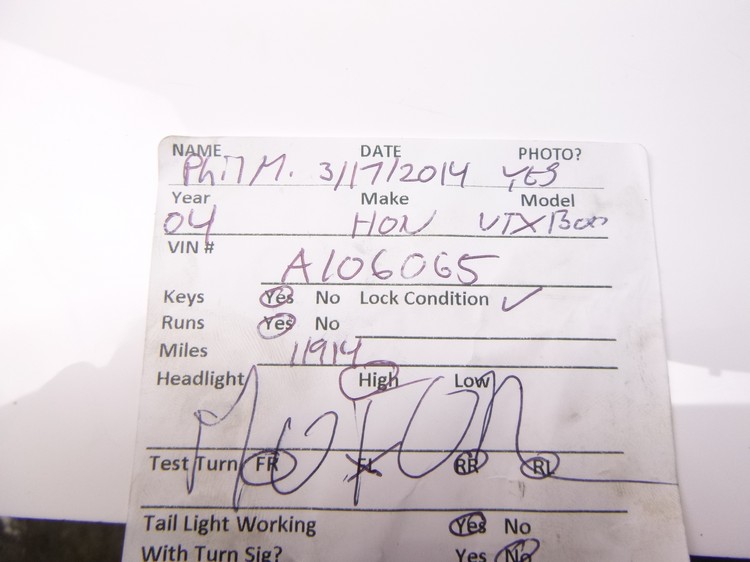 NAME DATE PHOTO?
Phil M. 3/17/2014 YES
Year Make Model
04 HON VTX1300
VIN #
A106065
Keys Yes No Lock Condition ✓
Runs Yes No
Miles 11914
Headlight High Low
Test Turn FR FL RR RL
Tail Light Working Yes No
With Turn Sig? Yes No